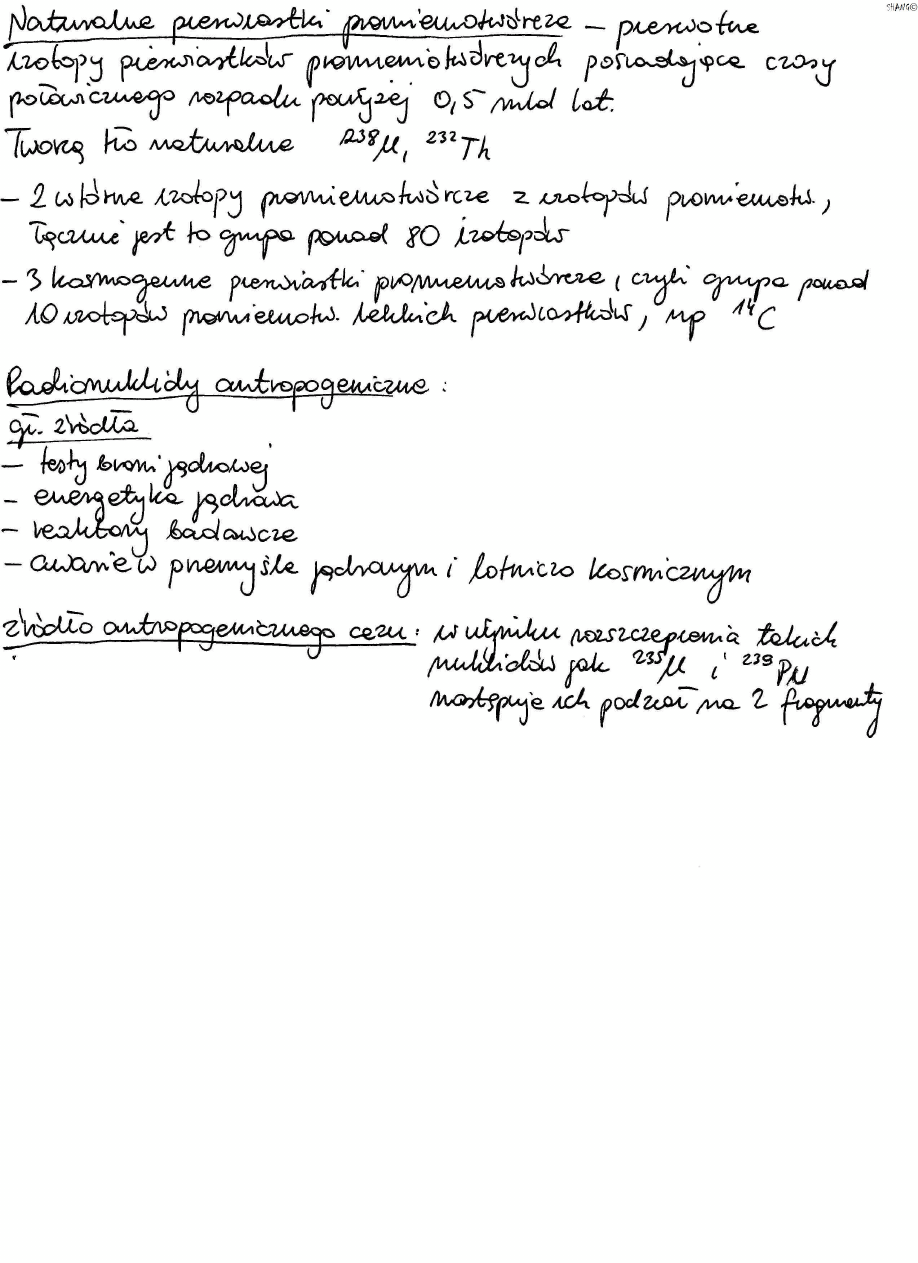 SHANG©
Naturalne pierwiastki promieniotwórcze – pierwotne
izotopy pierwiastków promieniotwórczych posiadające czasy
połowicznego rozpadu powyżej 0,5 mld lat.
Tworzą tło naturalne ²³⁸U, ²³²Th
– 2 wtórne izotopy promieniotwórcze z izotopów promieniotw.,
łącznie jest to grupa ponad 80 izotopów
– 3 kosmogenne pierwiastki promieniotwórcze, czyli grupa ponad
10 izotopów promieniotw. lekkich pierwiastków, np ¹⁴C
Radionuklidy antropogeniczne :
gł. źródła
– testy broni jądrowej
– energetyka jądrowa
– reaktory badawcze
– awarie w przemyśle jądrowym i lotniczo kosmicznym
źródło antropogenicznego cezu : w wyniku rozszczepienia takich
nuklidów jak ²³⁵U i ²³⁹Pu
następuje ich podział na 2 fragmenty